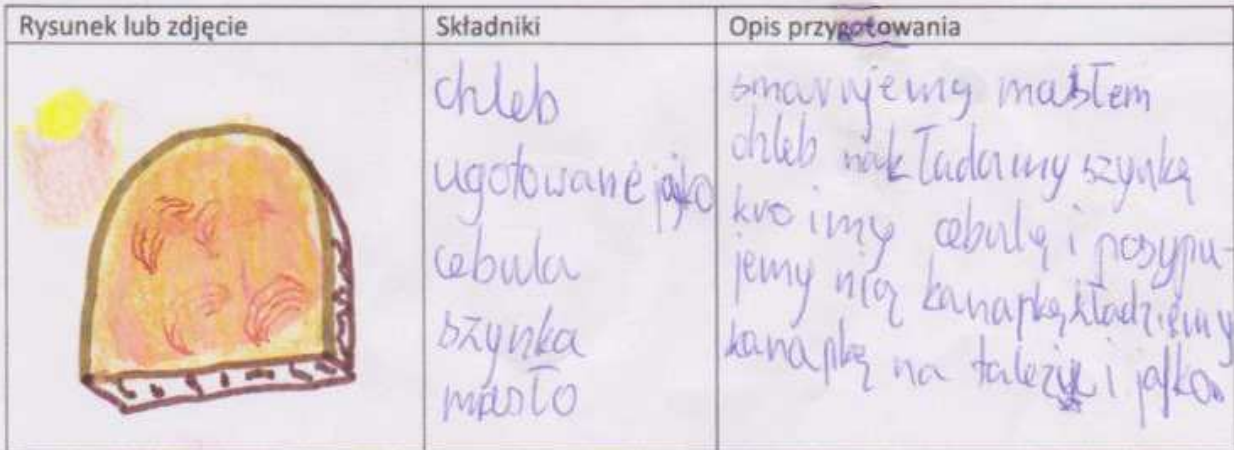 Rysunek lub zdjęcie
Składniki
Opis przygotowania
chleb
ugotowane jajko
cebula
szynka
masło
smarujemy masłem
chleb nakładamy szynkę
kroimy cebulę i posypu-
jemy nią kanapkę kładziemy
kanapkę na tależyk i jajko